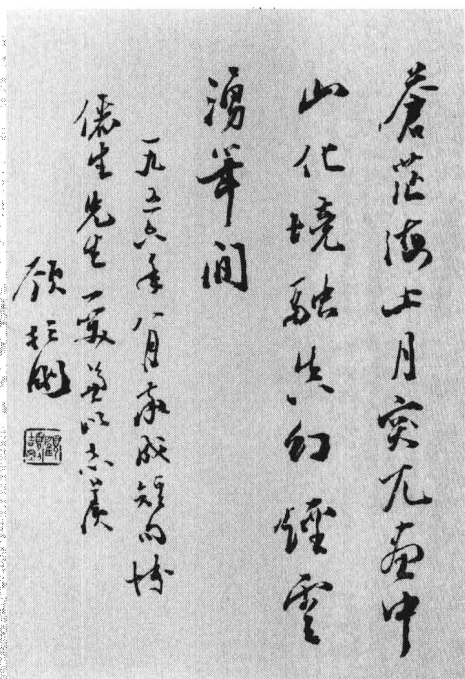 蒼茫海上月突兀畫中
山化境融真幻煙雲
湧筆間
一九五六年八月敬成短句博
儒生先生一笑並以志羨
顾頡剛